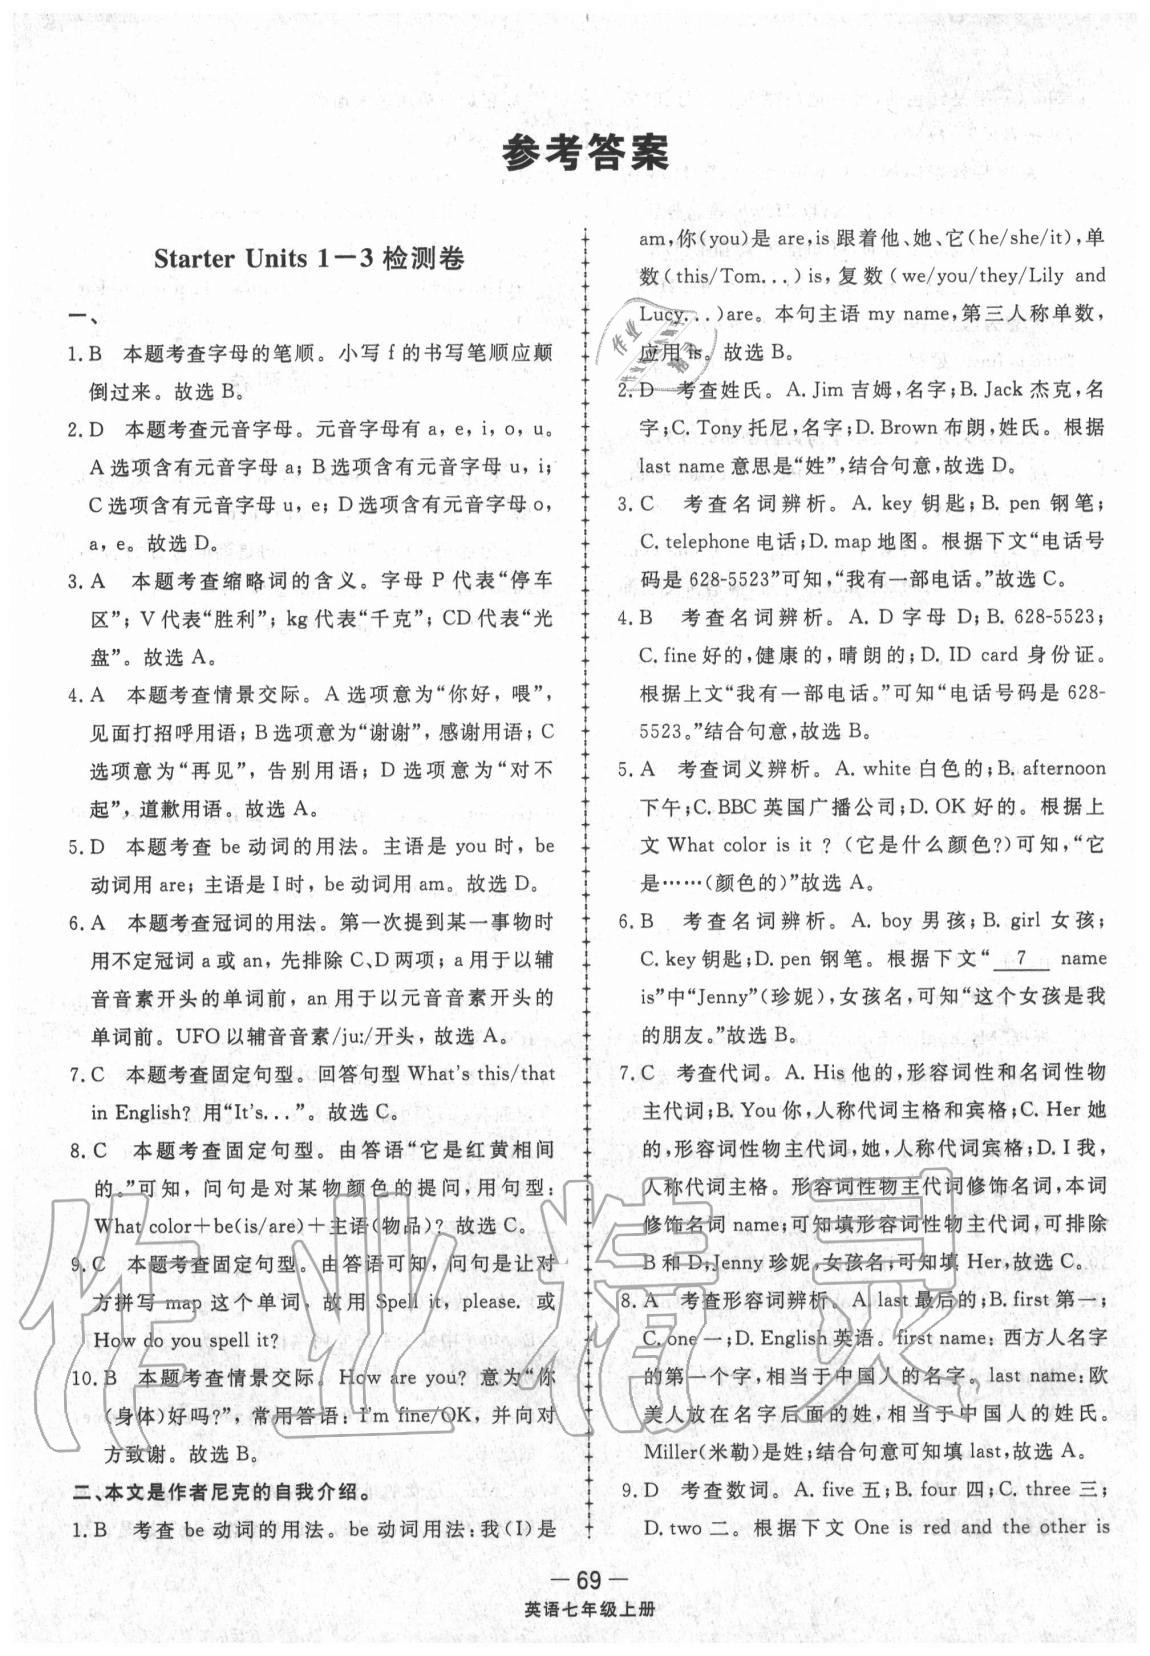 参考答案
Starter Units 1－3 检测卷
一、
1. B　本题考查字母的笔顺。小写 f 的书写笔顺应颠
倒过来。故选 B。
2. D　本题考查元音字母。元音字母有 a，e，i，o，u。
A 选项含有元音字母 a；B 选项含有元音字母 u，i；
C 选项含有元音字母 u，e；D 选项含有元音字母 o，
a，e。故选 D。
3. A　本题考查缩略词的含义。字母 P 代表“停车
区”；V 代表“胜利”；kg 代表“千克”；CD 代表“光
盘”。故选 A。
4. A　本题考查情景交际。A 选项意为“你好，喂”，
见面打招呼用语；B 选项意为“谢谢”，感谢用语；C
选项意为“再见”，告别用语；D 选项意为“对不
起”，道歉用语。故选 A。
5. D　本题考查 be 动词的用法。主语是 you 时，be
动词用 are；主语是 I 时，be 动词用 am。故选 D。
6. A　本题考查冠词的用法。第一次提到某一事物时
用不定冠词 a 或 an，先排除 C、D 两项；a 用于以辅
音音素开头的单词前，an 用于以元音音素开头的
单词前。UFO 以辅音音素/ju:/开头，故选 A。
7. C　本题考查固定句型。回答句型 What's this/that
in English? 用“It's...”。故选 C。
8. C　本题考查固定句型。由答语“它是红黄相间
的。”可知，问句是对某物颜色的提问，用句型：
What color＋be(is/are)＋主语(物品)? 故选 C。
9. C　本题考查固定句型。由答语可知，问句是让对
方拼写 map 这个单词，故用 Spell it, please. 或
How do you spell it?
10. B　本题考查情景交际。How are you? 意为“你
(身体)好吗?”，常用答语：I'm fine/OK，并向对
方致谢。故选 B。
二、本文是作者尼克的自我介绍。
1. B　考查 be 动词的用法。be 动词用法：我(I)是
am，你(you)是 are，is 跟着他、她、它(he/she/it)，单
数(this/Tom...)is，复数(we/you/they/Lily and
Lucy...)are。本句主语 my name，第三人称单数，
应用 is。故选 B。
2. D　考查姓氏。A. Jim 吉姆，名字；B. Jack 杰克，名
字；C. Tony 托尼，名字；D. Brown 布朗，姓氏。根据
last name 意思是“姓”，结合句意，故选 D。
3. C　考查名词辨析。A. key 钥匙；B. pen 钢笔；
C. telephone 电话；D. map 地图。根据下文“电话号
码是 628-5523”可知，“我有一部电话。”故选 C。
4. B　考查名词辨析。A. D 字母 D；B. 628-5523；
C. fine 好的，健康的，晴朗的；D. ID card 身份证。
根据上文“我有一部电话。”可知“电话号码是 628-
5523。”结合句意，故选 B。
5. A　考查词义辨析。A. white 白色的；B. afternoon
下午；C. BBC 英国广播公司；D. OK 好的。根据上
文 What color is it ?（它是什么颜色?）可知，“它
是……(颜色的)”故选 A。
6. B　考查名词辨析。A. boy 男孩；B. girl 女孩；
C. key 钥匙；D. pen 钢笔。根据下文“ 7 name
is”中“Jenny”(珍妮)，女孩名，可知“这个女孩是我
的朋友。”故选 B。
7. C　考查代词。A. His 他的，形容词性和名词性物
主代词；B. You 你，人称代词主格和宾格；C. Her 她
的，形容词性物主代词，她，人称代词宾格；D. I 我，
人称代词主格。形容词性物主代词修饰名词，本词
修饰名词 name；可知填形容词性物主代词，可排除
B 和 D；Jenny 珍妮，女孩名；可知填 Her，故选 C。
8. A　考查形容词辨析。A. last 最后的；B. first 第一；
C. one 一；D. English 英语。first name：西方人名字
的第一个字，相当于中国人的名字。last name：欧
美人放在名字后面的姓，相当于中国人的姓氏。
Miller(米勒)是姓；结合句意可知填 last，故选 A。
9. D　考查数词。A. five 五；B. four 四；C. three 三；
D. two 二。根据下文 One is red and the other is
— 69 —
英语七年级上册
作业精灵